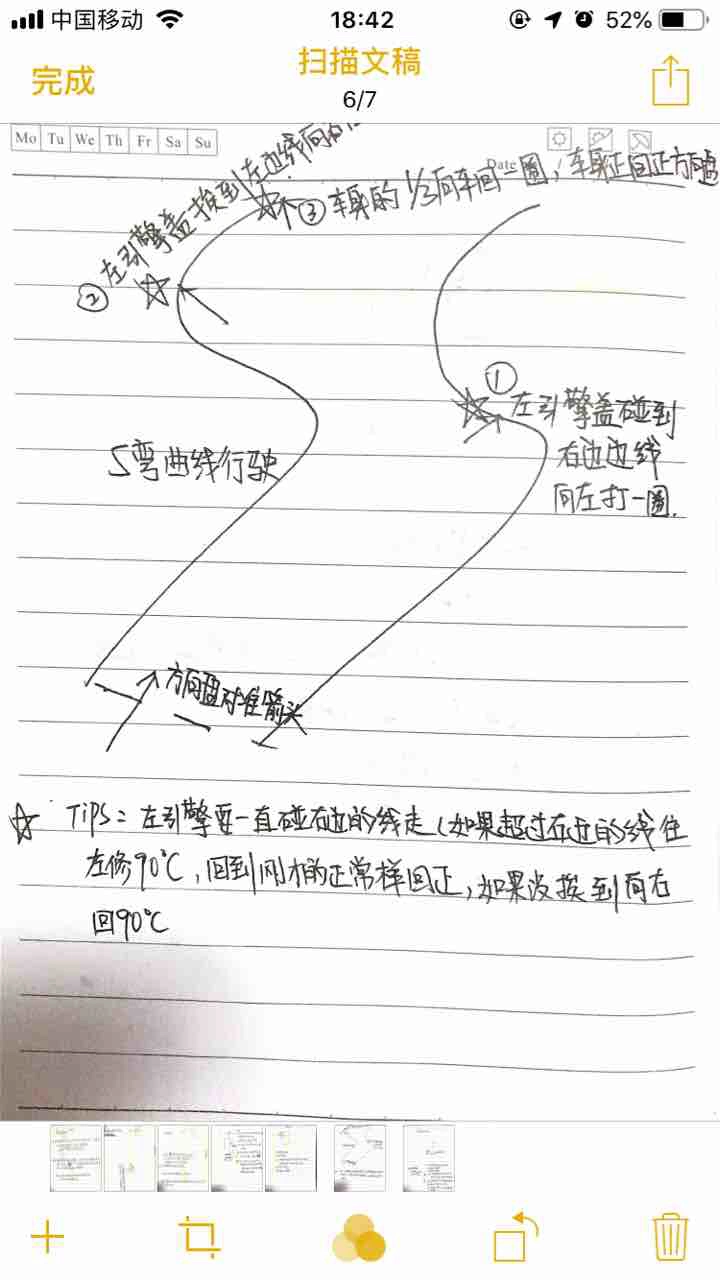 中国移动
18:42
52%
完成
扫描文稿
6/7
Mo Tu We Th Fr Sa Su
Date
②左引擎盖挨到左边线向右
③车身的1/3向车回一圈，车身正回正方向盘
①
左引擎盖碰到
右边边线
向左打一圈.
S弯曲线行驶
方向盘对准箭头
☆ Tips: 左引擎要一直碰右边的线走（如果超过右边的线往
左修90℃，回到刚才的正常样回正，如果没挨到向右
回90℃